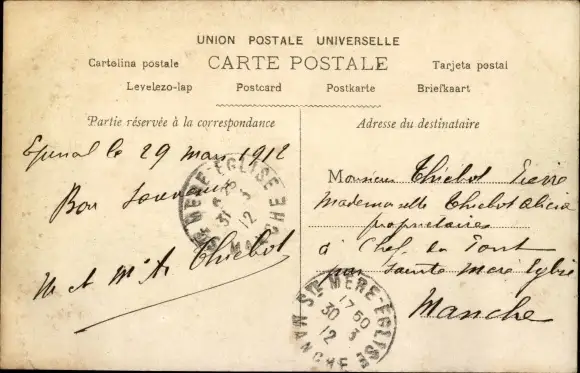 UNION POSTALE UNIVERSELLE
CARTE POSTALE
Cartolina postale
Tarjeta postal
Levelezo-lap Postcard Postkarte Briefkaart
Partie réservée à la correspondance
Epinal le 29 mars 1912
Bon Souvenir
M et Me A. Thiebot
Adresse du destinataire
Monsieur Thiebot Pierre
Mademoiselle Thiebot Alicia
propriétaires
à Chef du Pont
par Sainte Mere Eglise
Manche
STE MERE-EGLISE
31 3
12
MANCHE
STE MERE-EGLISE
17 50
30 3
12
MANCHE